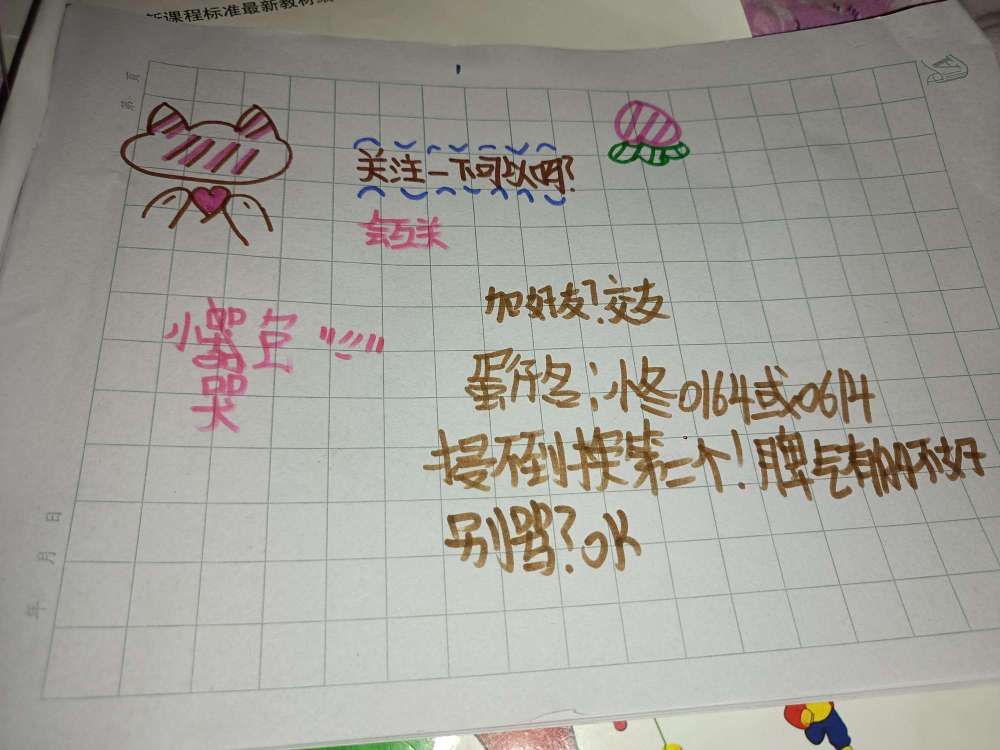 新课程标准最新教材
第 页
关注一下可以吗?
会互关
加好友?交友
小哭包
哭
蛋仔名:小冬0164或0614
搜不到换第二个!脾气有点不好
别骂?OK
年 月 日